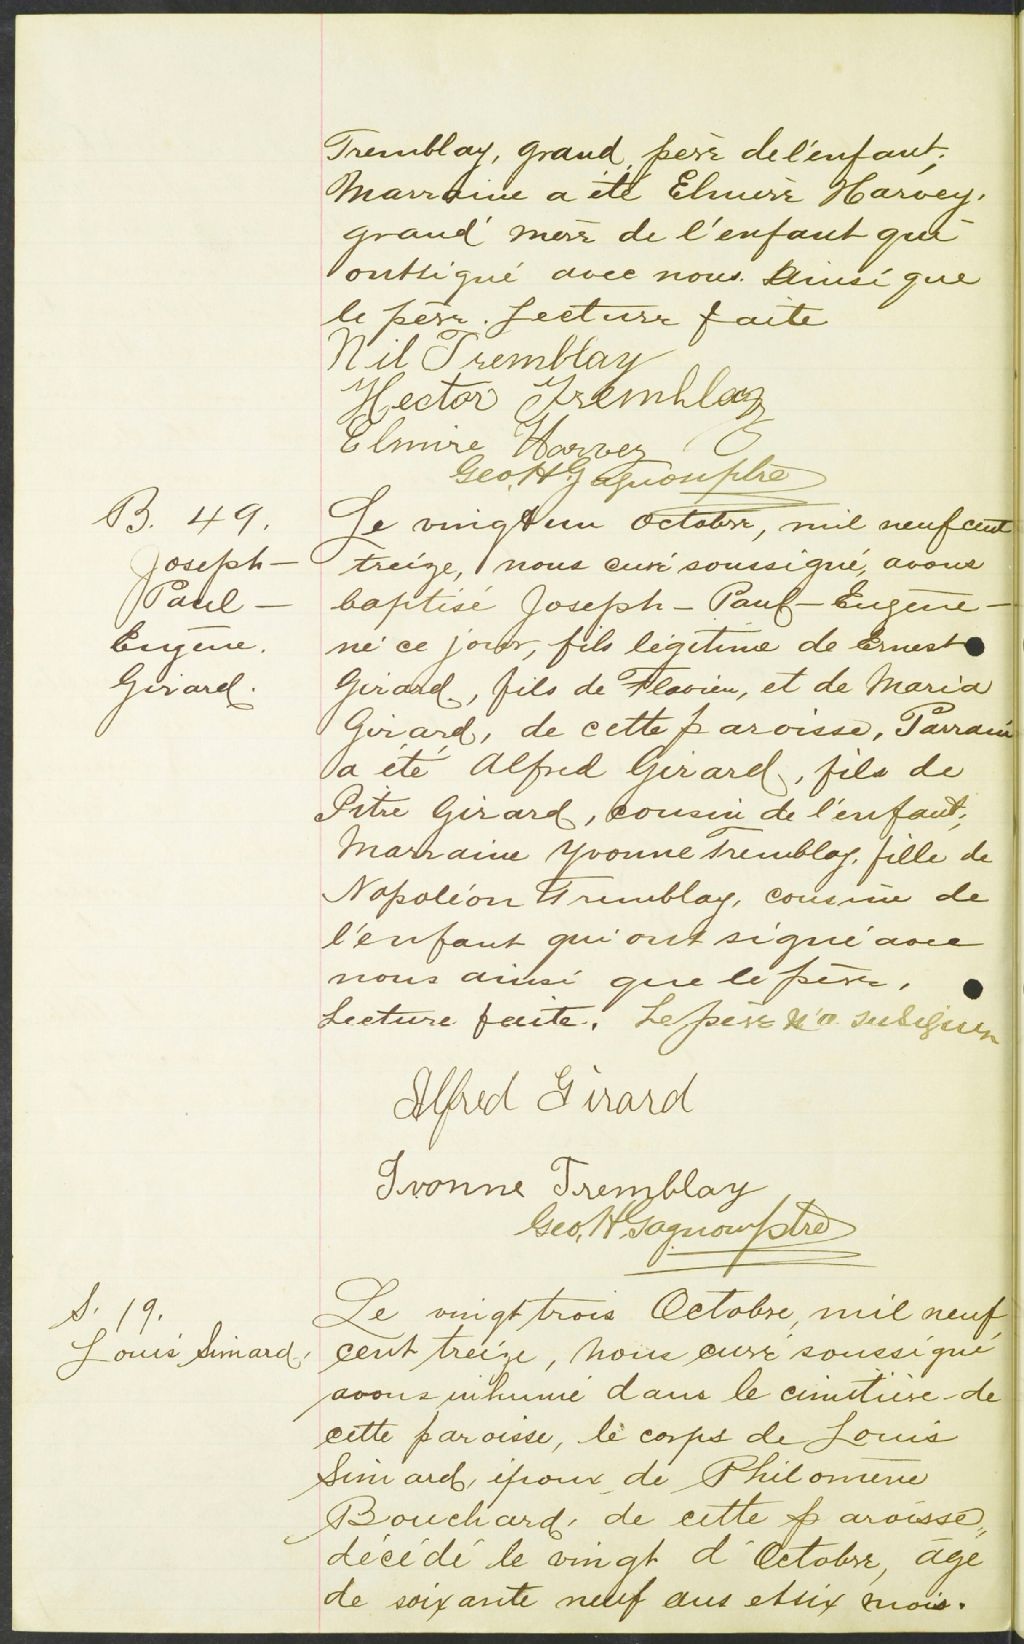 Tremblay, grand père de l'enfant;
Marraine a été Elmire Harvey,
grand' mère de l'enfant qui
ont signé avec nous ainsi que
le père. Lecture faite
Nil Tremblay
Hector Tremblay
Elmire Harvey
Geo. H. Gagnon ptre
B. 49.
Joseph-
Paul-
Eugène.
Girard.
Le vingt un Octobre, mil neuf cent
treize, nous curé soussigné, avons
baptisé Joseph-Paul-Eugène-
né ce jour, fils légitime de Ernest
Girard, fils de Flavien, et de Maria
Girard, de cette paroisse, Parrain
a été Alfred Girard, fils de
Pitre Girard, cousin de l'enfant;
Marraine Yvonne Tremblay, fille de
Napoléon Tremblay, cousine de
l'enfant qui ont signé avec
nous ainsi que le père.
Lecture faite. Le père n'a su signer
Alfred Girard
Ivonne Tremblay
Geo. H. Gagnon ptre
S. 19.
Louis Simard.
Le vingt trois Octobre, mil neuf
cent treize, nous curé soussigné
avons inhumé dans le cimetière de
cette paroisse, le corps de Louis
Simard, époux de Philomène
Bouchard, de cette paroisse,
décédé le vingt d'Octobre, âgé
de soixante neuf ans et six mois.